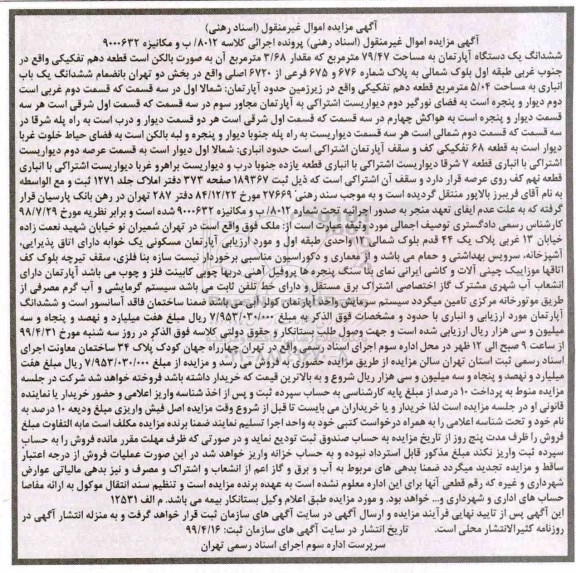 آگهی مزایده اموال غیرمنقول (اسناد رهنی)
آگهی مزایده اموال غیرمنقول (اسناد رهنی) پرونده اجرائی کلاسه ۸۰۱۲/ ب و مکانیزه ۹۰۰۰۶۳۲
ششدانگ یک دستگاه آپارتمان به مساحت ۷۹/۴۷ مترمربع که مقدار ۳/۶۸ مترمربع آن به صورت بالکن است قطعه دهم تفکیکی واقع در
جنوب غربی طبقه اول بلوک شمالی به پلاک شماره ۶۷۶ و ۶۷۵ فرعی از ۶۷۲۰ اصلی واقع در بخش دو تهران بانضمام ششدانگ یک باب
انباری به مساحت ۵/۰۴ مترمربع قطعه دهم تفکیکی واقع در زیرزمین حدود آپارتمان: شمالا اول در سه قسمت که قسمت دوم غربی است
دوم دیوار و پنجره است به فضای نورگیر دوم دیواریست اشتراکی به آپارتمان مجاور سوم در سه قسمت که قسمت اول شرقی است هر سه
قسمت دیوار و پنجره است به هواکش چهارم در سه قسمت که قسمت اول شرقی است هر دو قسمت دیوار و درب است به راه پله شرقا در
سه قسمت که قسمت دوم شمالی است هر سه قسمت دیواریست به راه پله جنوبا دیوار و پنجره و لبه بالکن است به فضای حیاط خلوت غربا
دیوار است به قطعه ۶۸ تفکیکی کف و سقف آپارتمان اشتراکی است حدود انباری: شمالا اول دیوار است به قسمت عرصه دوم دیواریست
اشتراکی با انباری قطعه ۷ شرقا دیواریست اشتراکی با انباری قطعه یازده جنوبا درب و دیواریست براهرو غربا دیواریست اشتراکی با انباری
قطعه نهم کف روی عرصه قرار دارد و سقف آن اشتراکی است که ذیل ثبت ۱۸۹۳۶۷ صفحه ۳۷۳ دفتر املاک جلد ۱۲۷۱ ثبت و مع الواسطه
به نام آقای فریبرز بالاپور منتقل گردیده است و به موجب سند رهنی ۲۷۶۶۹ مورخ ۸۴/۱۲/۲۲ دفتر ۲۸۷ تهران در رهن بانک پارسیان قرار
گرفته که به علت عدم ایفای تعهد منجر به صدور اجرائیه به شماره ۸۰۱۲/ب و مکانیزه ۹۰۰۰۶۳۲ شده است و برابر نظریه مورخ ۹۸/۷/۲۹
کارشناس رسمی دادگستری توصیف اجمالی مورد وثیقه عبارت است از: ملک فوق واقع است در تهران شمیران نو خیابان شهید نعمت زاده
خیابان ۱۳ غربی پلاک یک ۴۴ قدم بلوک شمالی ۱۰ واحدی طبقه اول و مورد ارزیابی آپارتمان مسکونی یک خوابه دارای اتاق پذیرایی،
آشپزخانه، سرویس بهداشتی و حمام می باشد و از معماری و دکوراسیون مناسبی برخوردار نیست سازه بنا فلزی، سقف تیرچه بلوک کف
اتاقها موزاییک چینی آلات و کاشی ایرانی نمای با سنگ پنجره ها پروفیل آهنی دربها چوبی کابینت فلز و چوب می باشد آپارتمان دارای
انشعاب آب شهری مشترک گاز اختصاصی اشتراک برق مستقل و دارای خط تلفن ثابت می باشد سیستم گرمایشی و آب گرم مصرفی از
طریق موتورخانه مرکزی تامین میگردد سیستم سرمایش واحد آپارتمان کولر آبی می باشد ضمنا ساختمان فاقد آسانسور است و ششدانگ
آپارتمان مورد ارزیابی و انباری با حدود و مشخصات فوق الذکر به مبلغ ۷/۹۵۳/۰۳۰/۰۰۰ ریال مبلغ هفت میلیارد و نهصد و پنجاه و سه
میلیون و سی هزار ریال ارزیابی شده است و جهت وصول طلب بستانکار و حقوق دولتی کلاسه فوق الذکر در روز سه شنبه مورخ ۹۹/۴/۳۱
از ساعت ۹ صبح الی ۱۲ ظهر در محل اداره سوم اجرای اسناد رسمی واقع در تهران چهارراه جهان کودک پلاک ۳۴ ساختمان معاونت اجرای
اسناد رسمی ثبت استان تهران سالن مزایده از طریق مزایده حضوری به فروش می رسد و مزایده از مبلغ ۷/۹۵۳/۰۳۰/۰۰۰ ریال مبلغ هفت
میلیارد و نهصد و پنجاه و سه میلیون و سی هزار ریال شروع و به بالاترین قیمت که خریدار داشته باشد فروخته خواهد شد شرکت در جلسه
مزایده منوط به پرداخت ۱۰ درصد از مبلغ پایه کارشناسی به حساب سپرده ثبت و پس از اخذ شناسه واریز اعلامی و حضور خریدار یا نماینده
قانونی او در جلسه مزایده است لذا خریدار و یا خریداران می بایست تا قبل از شروع وقت مزایده اصل فیش واریزی مبلغ ودیعه ۱۰ درصد به
نام خود و تحت شناسه اعلامی را به همراه درخواست کتبی خود به واحد اجرا تسلیم نمایند ضمنا برنده مزایده مکلف است مابه التفاوت مبلغ
فروش را ظرف مدت پنج روز از تاریخ مزایده به حساب صندوق ثبت تودیع نماید و در صورتی که ظرف مهلت مقرر مانده فروش را به حساب
سپرده ثبت واریز نکند مبلغ مذکور قابل استرداد نبوده و به حساب خزانه واریز خواهد شد در این صورت عملیات فروش از درجه اعتبار
ساقط و مزایده تجدید میگردد ضمنا بدهی های مربوط به آب و برق و گاز اعم از انشعاب و اشتراک و مصرف و نیز بدهی مالیاتی عوارض
شهرداری و غیره که رقم قطعی آنها برای این اداره معلوم نشده است به عهده برنده مزایده است و تنظیم سند انتقال موکول به ارائه مفاصا
حساب های اداری و شهرداری و... خواهد بود. و مورد مزایده طبق اعلام وکیل بستانکار بیمه می باشد. م الف ۱۲۵۳۱
این آگهی پس از تایید نهایی فرآیند مزایده و ارسال آگهی در سایت آگهی های سازمان ثبت قرار خواهد گرفت و به منزله انتشار آگهی در
روزنامه کثیرالانتشار محلی است. تاریخ انتشار در سایت آگهی های سازمان ثبت: ۹۹/۴/۱۶
سرپرست اداره سوم اجرای اسناد رسمی تهران